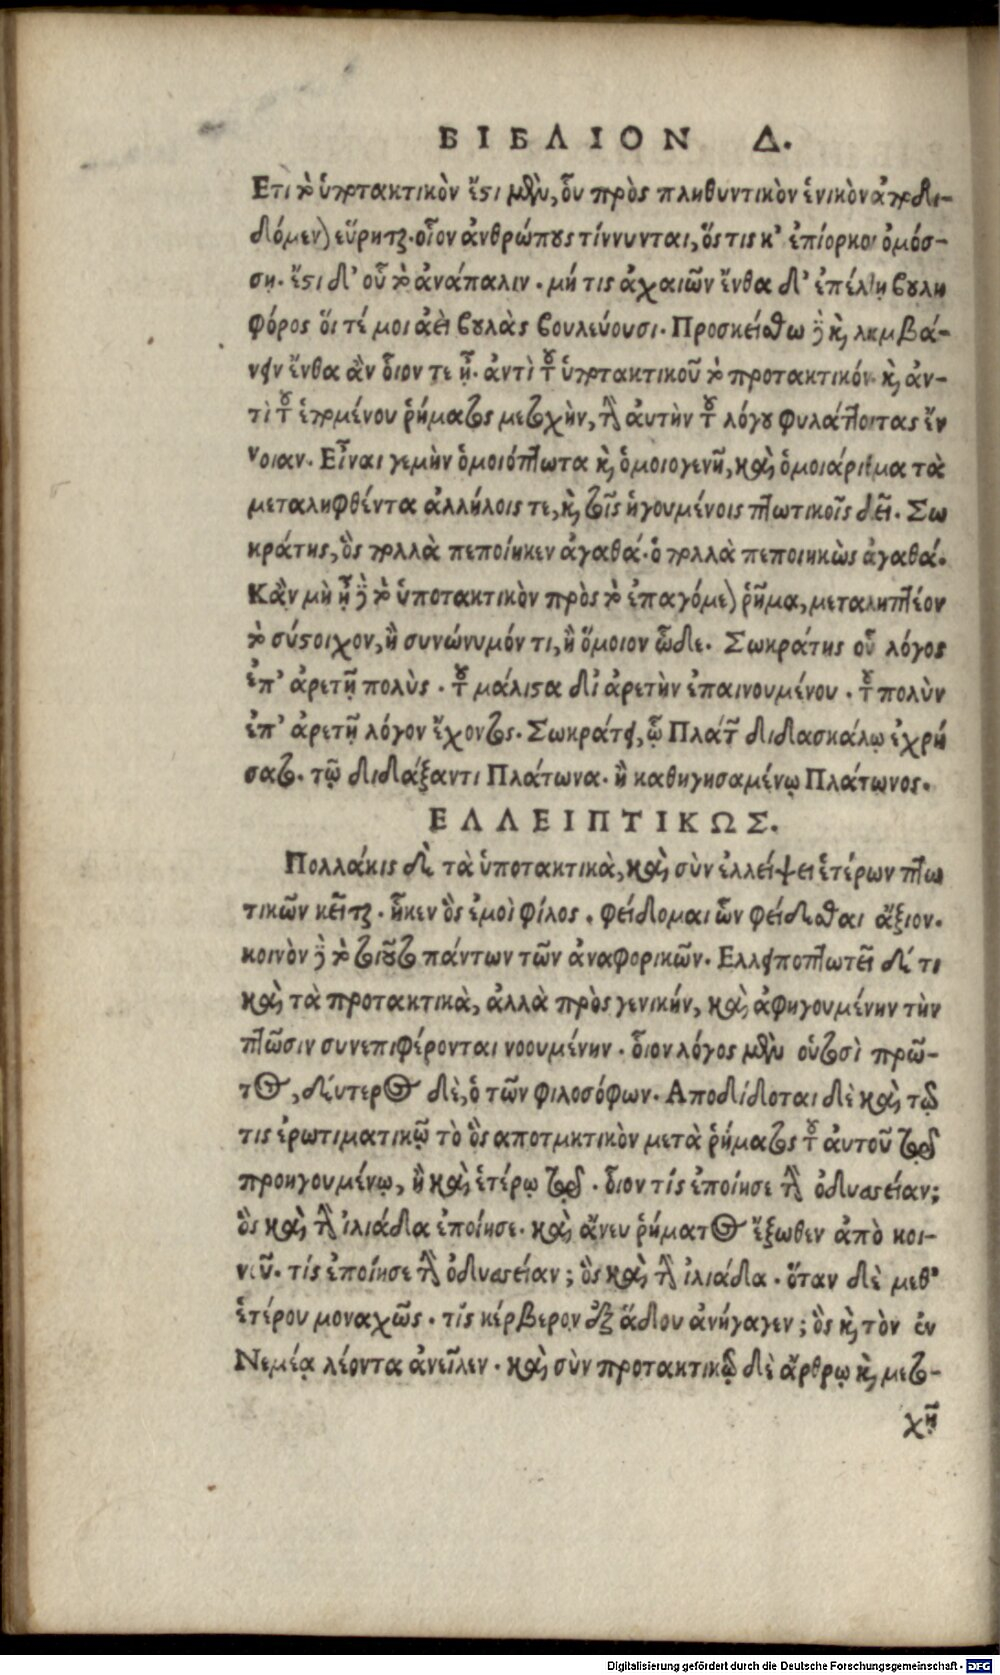 ΒΙΒΛΙΟΝ Δ.
Ετι τὸ ὑποτακτικὸν ἔστι μὲν, οὗ πρὸς πληθυντικὸν ἑνικὸν ἀποδι-
δόμενον εὕρηται. οἷον ἀνθρώπους τίννυνται, ὅς τις κ' ἐπίορκον ὀμόσ-
ση. ἔστι δ' οὗ τὸ ἀνάπαλιν. μή τις ἀχαιῶν ἔνθα δ' ἐπέλθῃ βουλη
φόρος οἵ τέ μοι ἀεὶ βουλὰς βουλεύουσι. Προσκείσθω δὲ καὶ λαμβά-
νειν ἔνθα ἂν οἷον τε ᾖ. ἀντὶ τοῦ ὑποτακτικοῦ τὸ προτακτικόν. καὶ ἀν-
τὶ τοῦ ἑπομένου ῥήματος μετοχὴν, τὴν αὐτὴν τοῦ λόγου φυλάττοντας ἔν
νοιαν. Εἶναι γεμὴν ὁμοιόπτωτα καὶ ὁμοιογενῆ, καὶ ὁμοιάριθμα τὰ
μεταληφθέντα ἀλλήλοις τε, καὶ τοῖς ἡγουμένοις πτωτικοῖς δεῖ. Σω
κράτης, ὃς πολλὰ πεποίηκεν ἀγαθά. ὁ πολλὰ πεποιηκὼς ἀγαθά.
Κἂν μὴ ᾖ δὲ τὸ ὑποτακτικὸν πρὸς τὸ ἐπαγόμενον ῥῆμα, μεταληπτέον
τὸ σύστοιχον, ἢ συνώνυμόν τι, ἢ ὅμοιον ὧδε. Σωκράτης οὗ λόγος
ἐπ' ἀρετῇ πολὺς. τοῦ μάλιστα δι' ἀρετὴν ἐπαινουμένου. τοῦ πολὺν
ἐπ' ἀρετῇ λόγον ἔχοντος. Σωκράτει, ᾧ Πλάτων διδασκάλῳ ἐχρή
σατο. τῷ διδάξαντι Πλάτωνα. ἢ καθηγησαμένῳ Πλάτωνος.
ΕΛΛΕΙΠΤΙΚΩΣ.
Πολλάκις δὲ τὰ ὑποτακτικὰ, καὶ σὺν ἐλλείψει ἑτέρων πτω
τικῶν κεῖται. ἧκεν ὃς ἐμοὶ φίλος. φείδομαι ὧν φείδεσθαι ἄξιον.
κοινὸν δὲ τὸ τοιοῦτο πάντων τῶν ἀναφορικῶν. Ελλειποπτωτεῖ δέ τι
καὶ τὰ προτακτικὰ, ἀλλὰ πρὸς γενικήν, καὶ ἀφηγουμένην τὴν
πτῶσιν συνεπιφέρονται νοουμένην. οἷον λόγος μὲν οὑτοσὶ πρῶ-
τος, δεύτερος δὲ, ὁ τῶν φιλοσόφων. Αποδίδοται δὲ καὶ τῷ
τις ἐρωτιματικῷ τὸ ὃς αποτμκτικὸν μετὰ ῥήματος τοῦ αὐτοῦ τῷ
προηγουμένῳ, ἢ καὶ ἑτέρῳ τῷδε. οἷον τίς ἐποίησε τὴν ὀδυασείαν;
ὃς καὶ τὴν ἰλιάδα ἐποίησε. καὶ ἄνευ ῥήματος ἔξωθεν ἀπὸ κοι-
νοῦ. τίς ἐποίησε τὴν ὀδυασείαν; ὃς καὶ τὴν ἰλιάδα. ὅταν δὲ μεθ'
ἑτέρου μοναχῶς. τίς κέρβερον ἐξ ᾅδου ἀνήγαγεν; ὃς καὶ τὸν ἐν
Νεμέᾳ λέοντα ἀνεῖλεν. καὶ σὺν προτακτικῷ δὲ ἄρθρῳ καὶ μετο-
χῇ